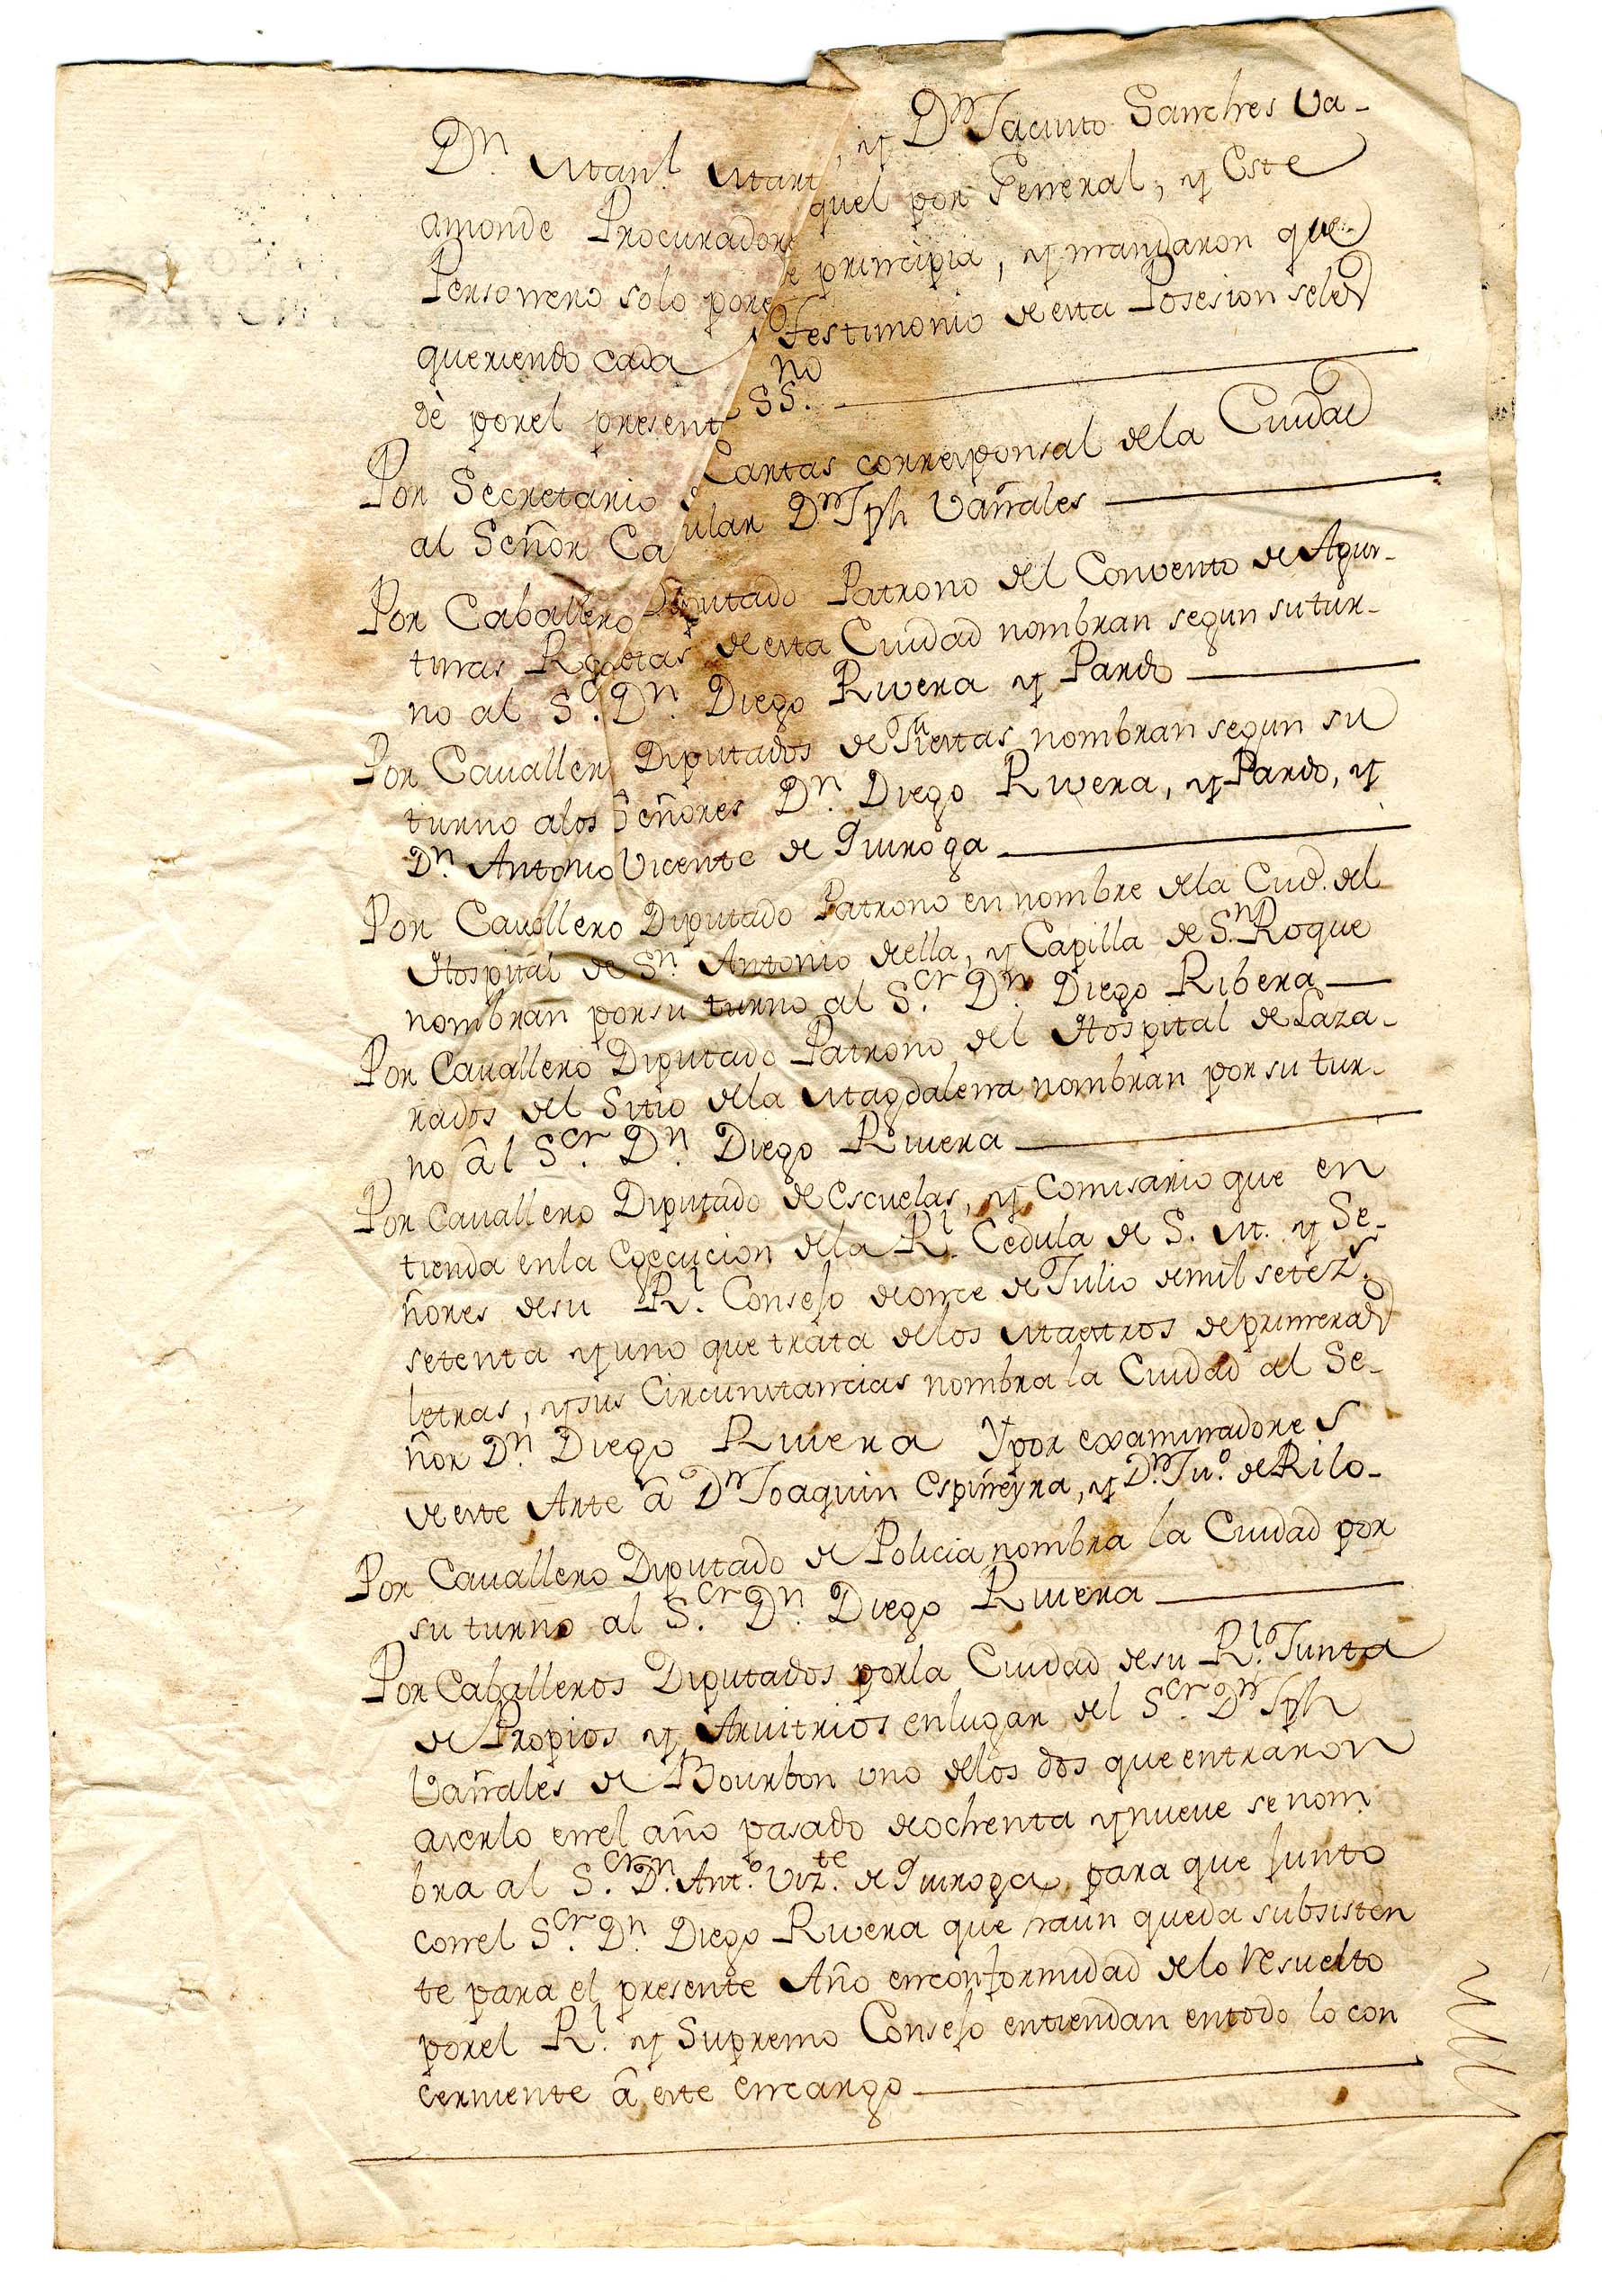 Dn. Manl. Mart , y Dn Jacinto Sanches Va-
amonde Procuradore quel por General, y Este
Personero solo por e principia, y mandaron que
queriendo cada Testimonio de esta Posesion sele
dè porel present SS.no
Por Secretario Cartas corresponsal dela Ciudad
al Señor Ca ular Dn Jph Vañales
Por Caballero Diputado Patrono del Convento de Agus-
tinas Rcoletas de esta Ciudad nombran segun su tur-
no al Sr. Dn. Diego Rivera y Pardo
Por Cavaller Diputados de Fiestas nombran segun su
turno alos Señores Dn. Diego Rivera, y Pardo, y
Dn. Antonio Vicente de Quiroga
Por Cavallero Diputado Patrono en nombre dela Ciud. del
Hospital de Sn. Antonio della, y Capilla de Sn. Roque
nombran por su turno al Sor. Dn. Diego Ribera
Por Cavallero Diputado Patrono del Hospital de Laza-
rados del Sitio dela Magdalena nombran por su tur-
no âl Sor. Dn. Diego Rivera
Por Cavallero Diputado de Escuelas, y Comisario que en
tienda enla Egecucion dela Rl. Cedula de S. M. y Se-
ñores desu Rl. Consejo de once de Julio de mil setezs.
setenta y uno que trata delos Maestros de primeras
letras, y sus Circunstancias nombra la Ciudad al Se-
ñor Dn. Diego Rivera Y por examinadores
de este Arte â Dn Joaquin Espiñeyra, y Dn. Ju.º de Rilo-
Por Cavallero Diputado de Policia nombra la Ciudad por
su turno al Sor. Dn. Diego Rivera
Por Caballeros Diputados porla Ciudad de su Rl. Junta
de Propios y Arvitrios enlugar del Sor. Dn Jph
Vañales de Bourbon uno delos dos que entraron
averlo enel año pasado de ochenta y nueve se nom
bra al Sor. Dn. Ant.º Vizte. de Quiroga, para que junto
conel Sor. Dn. Diego Rivera que aun queda subsisten
te para el presente Año en conformidad delo resuelto
porel Rl. y Supremo Consejo entiendan entodo lo con
cerniente â este encargo